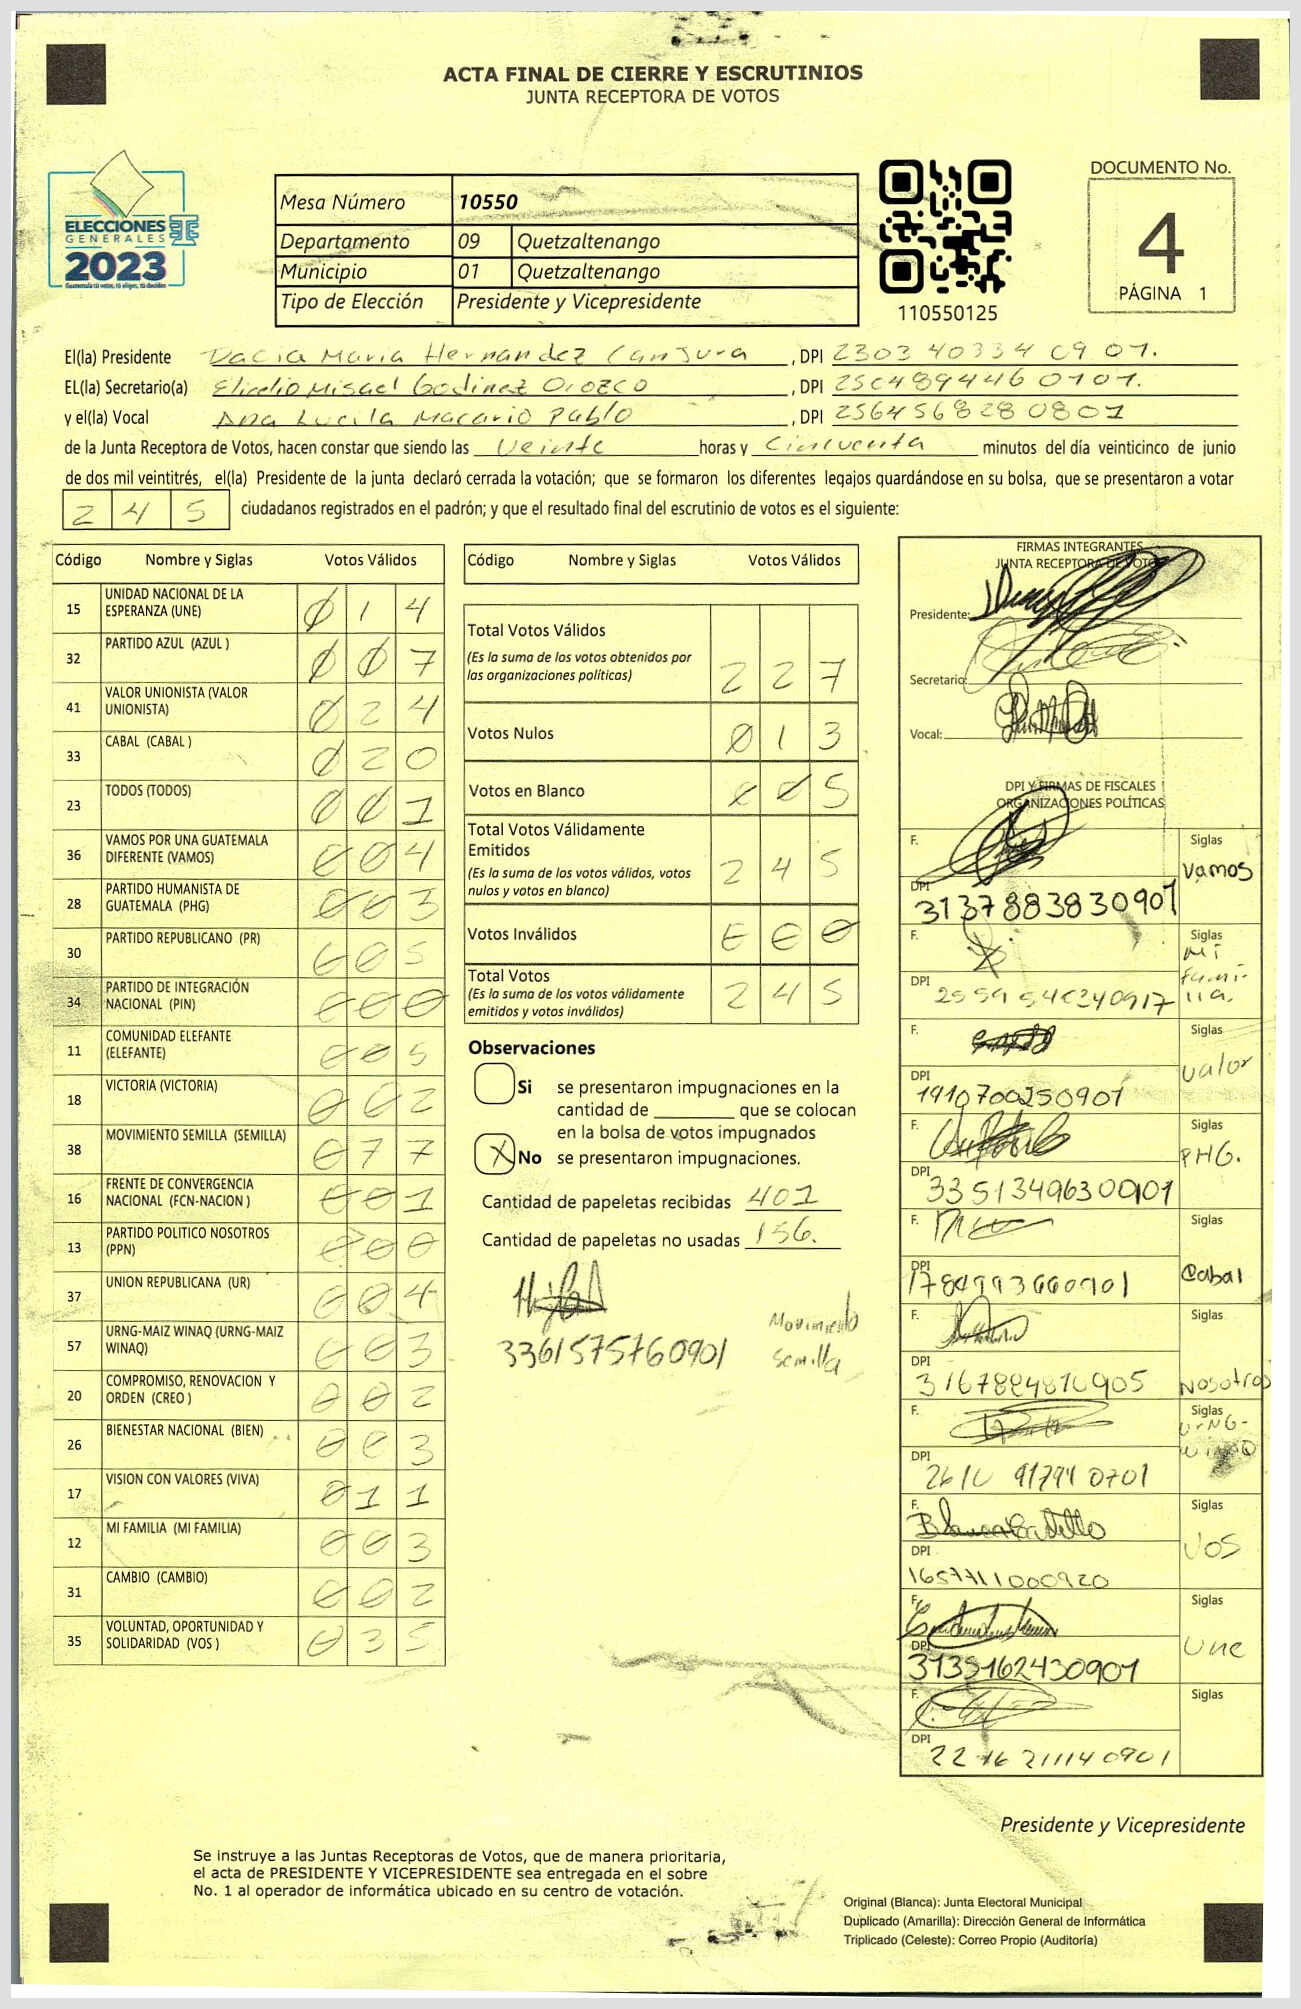 ACTA FINAL DE CIERRE Y ESCRUTINIOS
JUNTA RECEPTORA DE VOTOS
ELECCIONES
GENERALES
2023
Guatemala tú votas, tú eliges, tú decides
Mesa Número 10550
Departamento 09 Quetzaltenango
Municipio 01 Quetzaltenango
Tipo de Elección Presidente y Vicepresidente
110550125
DOCUMENTO No.
4
PÁGINA 1
El(la) Presidente Dacia Maria Hernandez Canjura , DPI 2303 40334 09 01.
EL(la) Secretario(a) Misael Godinez Orozco , DPI 2504894460101.
y el(la) Vocal Ana Lucila Macario Pablo , DPI 2564568280801
de la Junta Receptora de Votos, hacen constar que siendo las Veinte horas y Cincuenta minutos del día veinticinco de junio
de dos mil veintitrés, el(la) Presidente de la junta declaró cerrada la votación; que se formaron los diferentes legajos guardándose en su bolsa, que se presentaron a votar
2 4 5 ciudadanos registrados en el padrón; y que el resultado final del escrutinio de votos es el siguiente:
Código Nombre y Siglas Votos Válidos
15 UNIDAD NACIONAL DE LA ESPERANZA (UNE) 0 1 4
32 PARTIDO AZUL (AZUL ) 0 0 7
41 VALOR UNIONISTA (VALOR UNIONISTA) 0 2 4
33 CABAL (CABAL ) 0 2 0
23 TODOS (TODOS) 0 0 1
36 VAMOS POR UNA GUATEMALA DIFERENTE (VAMOS) 0 0 4
28 PARTIDO HUMANISTA DE GUATEMALA (PHG) 0 0 3
30 PARTIDO REPUBLICANO (PR) 0 0 5
34 PARTIDO DE INTEGRACIÓN NACIONAL (PIN) 0 0 0
11 COMUNIDAD ELEFANTE (ELEFANTE) 0 0 5
18 VICTORIA (VICTORIA) 0 0 2
38 MOVIMIENTO SEMILLA (SEMILLA) 0 7 7
16 FRENTE DE CONVERGENCIA NACIONAL (FCN-NACION ) 0 0 1
13 PARTIDO POLITICO NOSOTROS (PPN) 0 0 0
37 UNION REPUBLICANA (UR) 0 0 4
57 URNG-MAIZ WINAQ (URNG-MAIZ WINAQ) 0 0 3
20 COMPROMISO, RENOVACION Y ORDEN (CREO ) 0 0 2
26 BIENESTAR NACIONAL (BIEN) 0 0 3
17 VISION CON VALORES (VIVA) 0 1 1
12 MI FAMILIA (MI FAMILIA) 0 0 3
31 CAMBIO (CAMBIO) 0 0 2
35 VOLUNTAD, OPORTUNIDAD Y SOLIDARIDAD (VOS ) 0 3 5
Código Nombre y Siglas Votos Válidos
Total Votos Válidos 2 2 7
(Es la suma de los votos obtenidos por
las organizaciones políticas)
Votos Nulos 0 1 3
Votos en Blanco 0 0 5
Total Votos Válidamente
Emitidos 2 4 5
(Es la suma de los votos válidos, votos
nulos y votos en blanco)
Votos Inválidos 0 0 0
Total Votos 2 4 5
(Es la suma de los votos válidamente
emitidos y votos inválidos)
Observaciones
Si se presentaron impugnaciones en la
cantidad de ________ que se colocan
en la bolsa de votos impugnados
X No se presentaron impugnaciones.
Cantidad de papeletas recibidas 401
Cantidad de papeletas no usadas 156.
3361575760901 Movimiento
Semilla
FIRMAS INTEGRANTES
JUNTA RECEPTORA DE VOTOS
Presidente:
Secretario:
Vocal:
DPI Y FIRMAS DE FISCALES
ORGANIZACIONES POLÍTICAS
F. Siglas
Vamos
DPI 3137883830901
F. Siglas
Mi
Fami-
lia.
DPI
F. Siglas
Valor
DPI 1910700250901
F. Siglas
PHG.
DPI 3351349630901
F. Siglas
Cabal
DPI 1784993660901
F. Siglas
DPI 3167824810905 Nosotros
F. Siglas
URNG-
WINAQ
DPI 2610 91794 0701
F. Blanca Castillo Siglas
VOS
DPI 1657711000920
F. Siglas
Une
DPI 3135162430901
F. Siglas
DPI 22 16 21114 0901
Presidente y Vicepresidente
Se instruye a las Juntas Receptoras de Votos, que de manera prioritaria,
el acta de PRESIDENTE Y VICEPRESIDENTE sea entregada en el sobre
No. 1 al operador de informática ubicado en su centro de votación.
Original (Blanca): Junta Electoral Municipal
Duplicado (Amarilla): Dirección General de Informática
Triplicado (Celeste): Correo Propio (Auditoría)